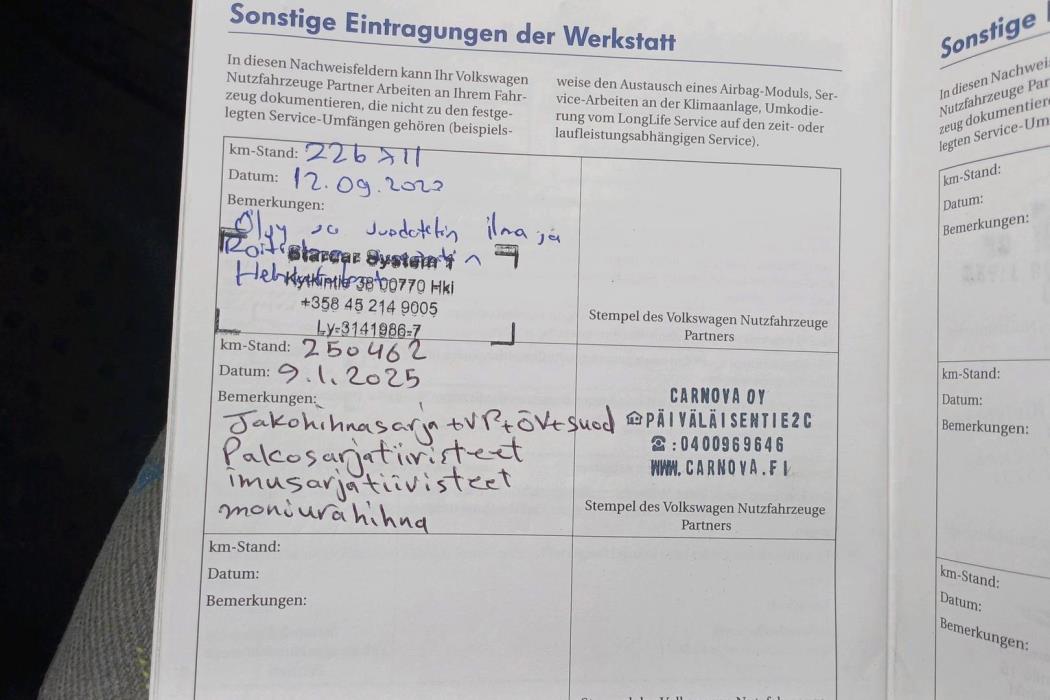 Sonstige Eintragungen der Werkstatt
In diesen Nachweisfeldern kann Ihr Volkswagen
Nutzfahrzeuge Partner Arbeiten an Ihrem Fahr-
zeug dokumentieren, die nicht zu den festge-
legten Service-Umfängen gehören (beispiels-
weise den Austausch eines Airbag-Moduls, Ser-
vice-Arbeiten an der Klimaanlage, Umkodie-
rung vom LongLife Service auf den zeit- oder
laufleistungsabhängigen Service).
km-Stand:
Datum: 12.09.2022
Bemerkungen:
Öljy ja suodatin ilma ja
Starcar System
38 00770 Hki
+358 45 214 9005
Ly=3141986-7
Stempel des Volkswagen Nutzfahrzeuge
Partners
km-Stand: 250462
Datum: 9.1.2025
Bemerkungen:
Jakohihnasarja +VP+ÖV+suod
Palcosarjatiivisteet
imusarjatiivisteet
moniurahihna
CARNOVA OY
PÄIVÄLÄISENTIE2C
:0400969646
WWW.CARNOVA.FI
Stempel des Volkswagen Nutzfahrzeuge
Partners
km-Stand:
Datum:
Bemerkungen:
Sonstige
In diesen
Nutzfahrzeuge
legten
km-Stand:
Datum:
Bemerkungen:
km-Stand:
Datum:
Bemerkungen:
km-Stand:
Datum:
Bemerkungen: